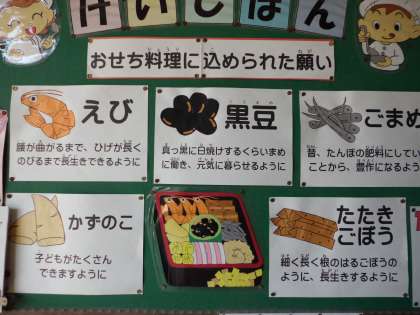 けいじばん
おせち料理に込められた願い
えび
腰が曲がるまで、ひげが長く
のびるまで長生きできるように
黒豆
真っ黒に日焼けするくらいまめ
に働き、元気に暮らせるように
ごまめ
昔、たんぼの肥料にしてい
ことから、豊作になるよう
かずのこ
子どもがたくさん
できますように
たたき
ごぼう
細く長く根のはるごぼう
のように、長生きするように